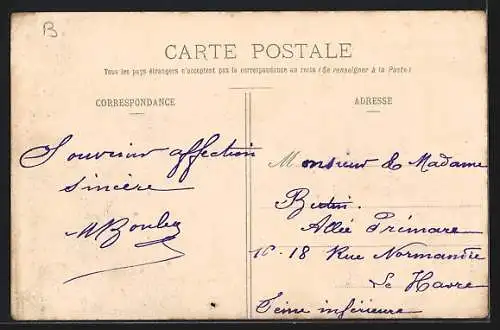 B
CARTE POSTALE
Tous les pays étrangers n'acceptent pas la correspondance au recto (Se renseigner à la Poste)
CORRESPONDANCE
ADRESSE
Souvenir affection
sincère
Monsieur & Madame
Allée Prémare
16-18 Rue Normandie
Le Havre
Seine inférieure